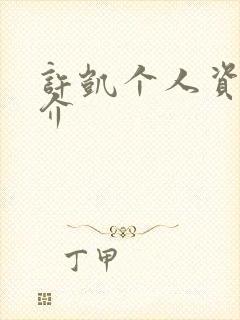 許凱个人資
介
丁甲